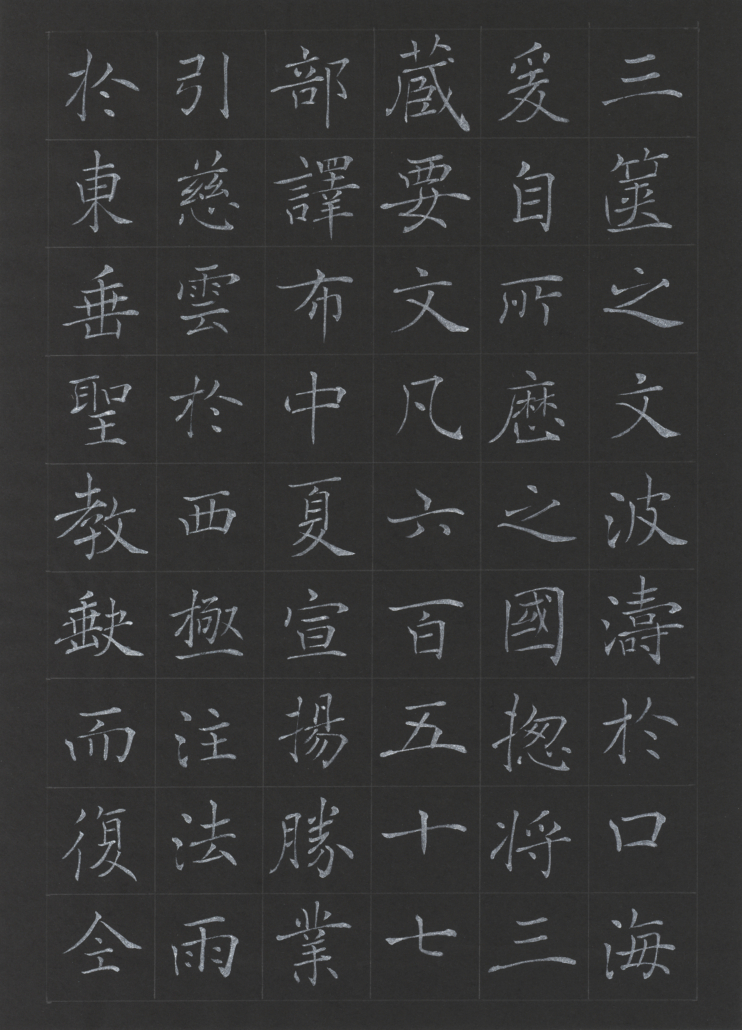 三篋之文波濤於口海
爰自所歷之國揔将三
蔵要文凡六百五十七
部譯布中夏宣揚勝業
引慈雲於西極注法雨
於東垂聖教缺而復全